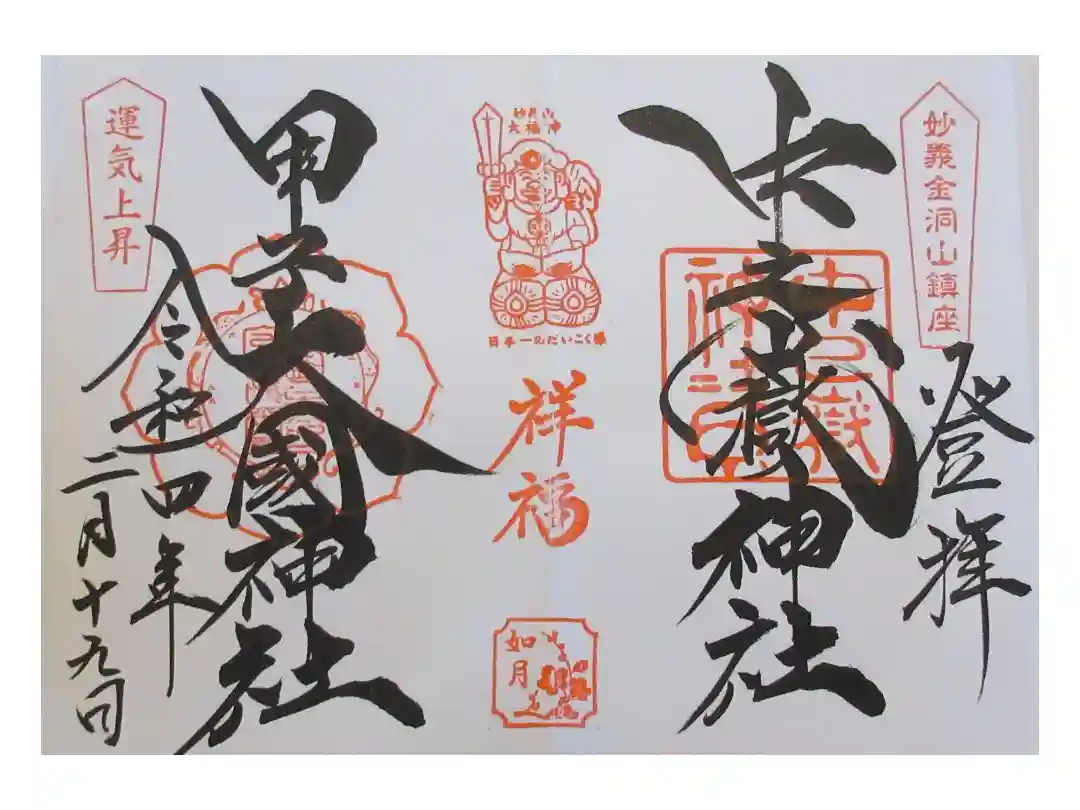 妙義金洞山鎮座
登拝
中之嶽神社
妙義山
大福神
日本一のだいこく様
祥福
如月
甲子大國神社
運気上昇
令和四年
二月十九日